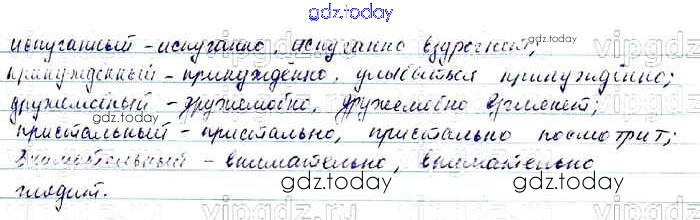 gdz.today
испуганный - испуганно, испуганно вздрогнет;
принужденный - принуждённо, улыбаться принуждённо;
дружелюбный - дружелюбно, дружелюбно взглянет;
gdz.today
пристальный - пристально, пристально посмотрит;
внимательный - внимательно, внимательно
глядит.
gdz.today gdz.today